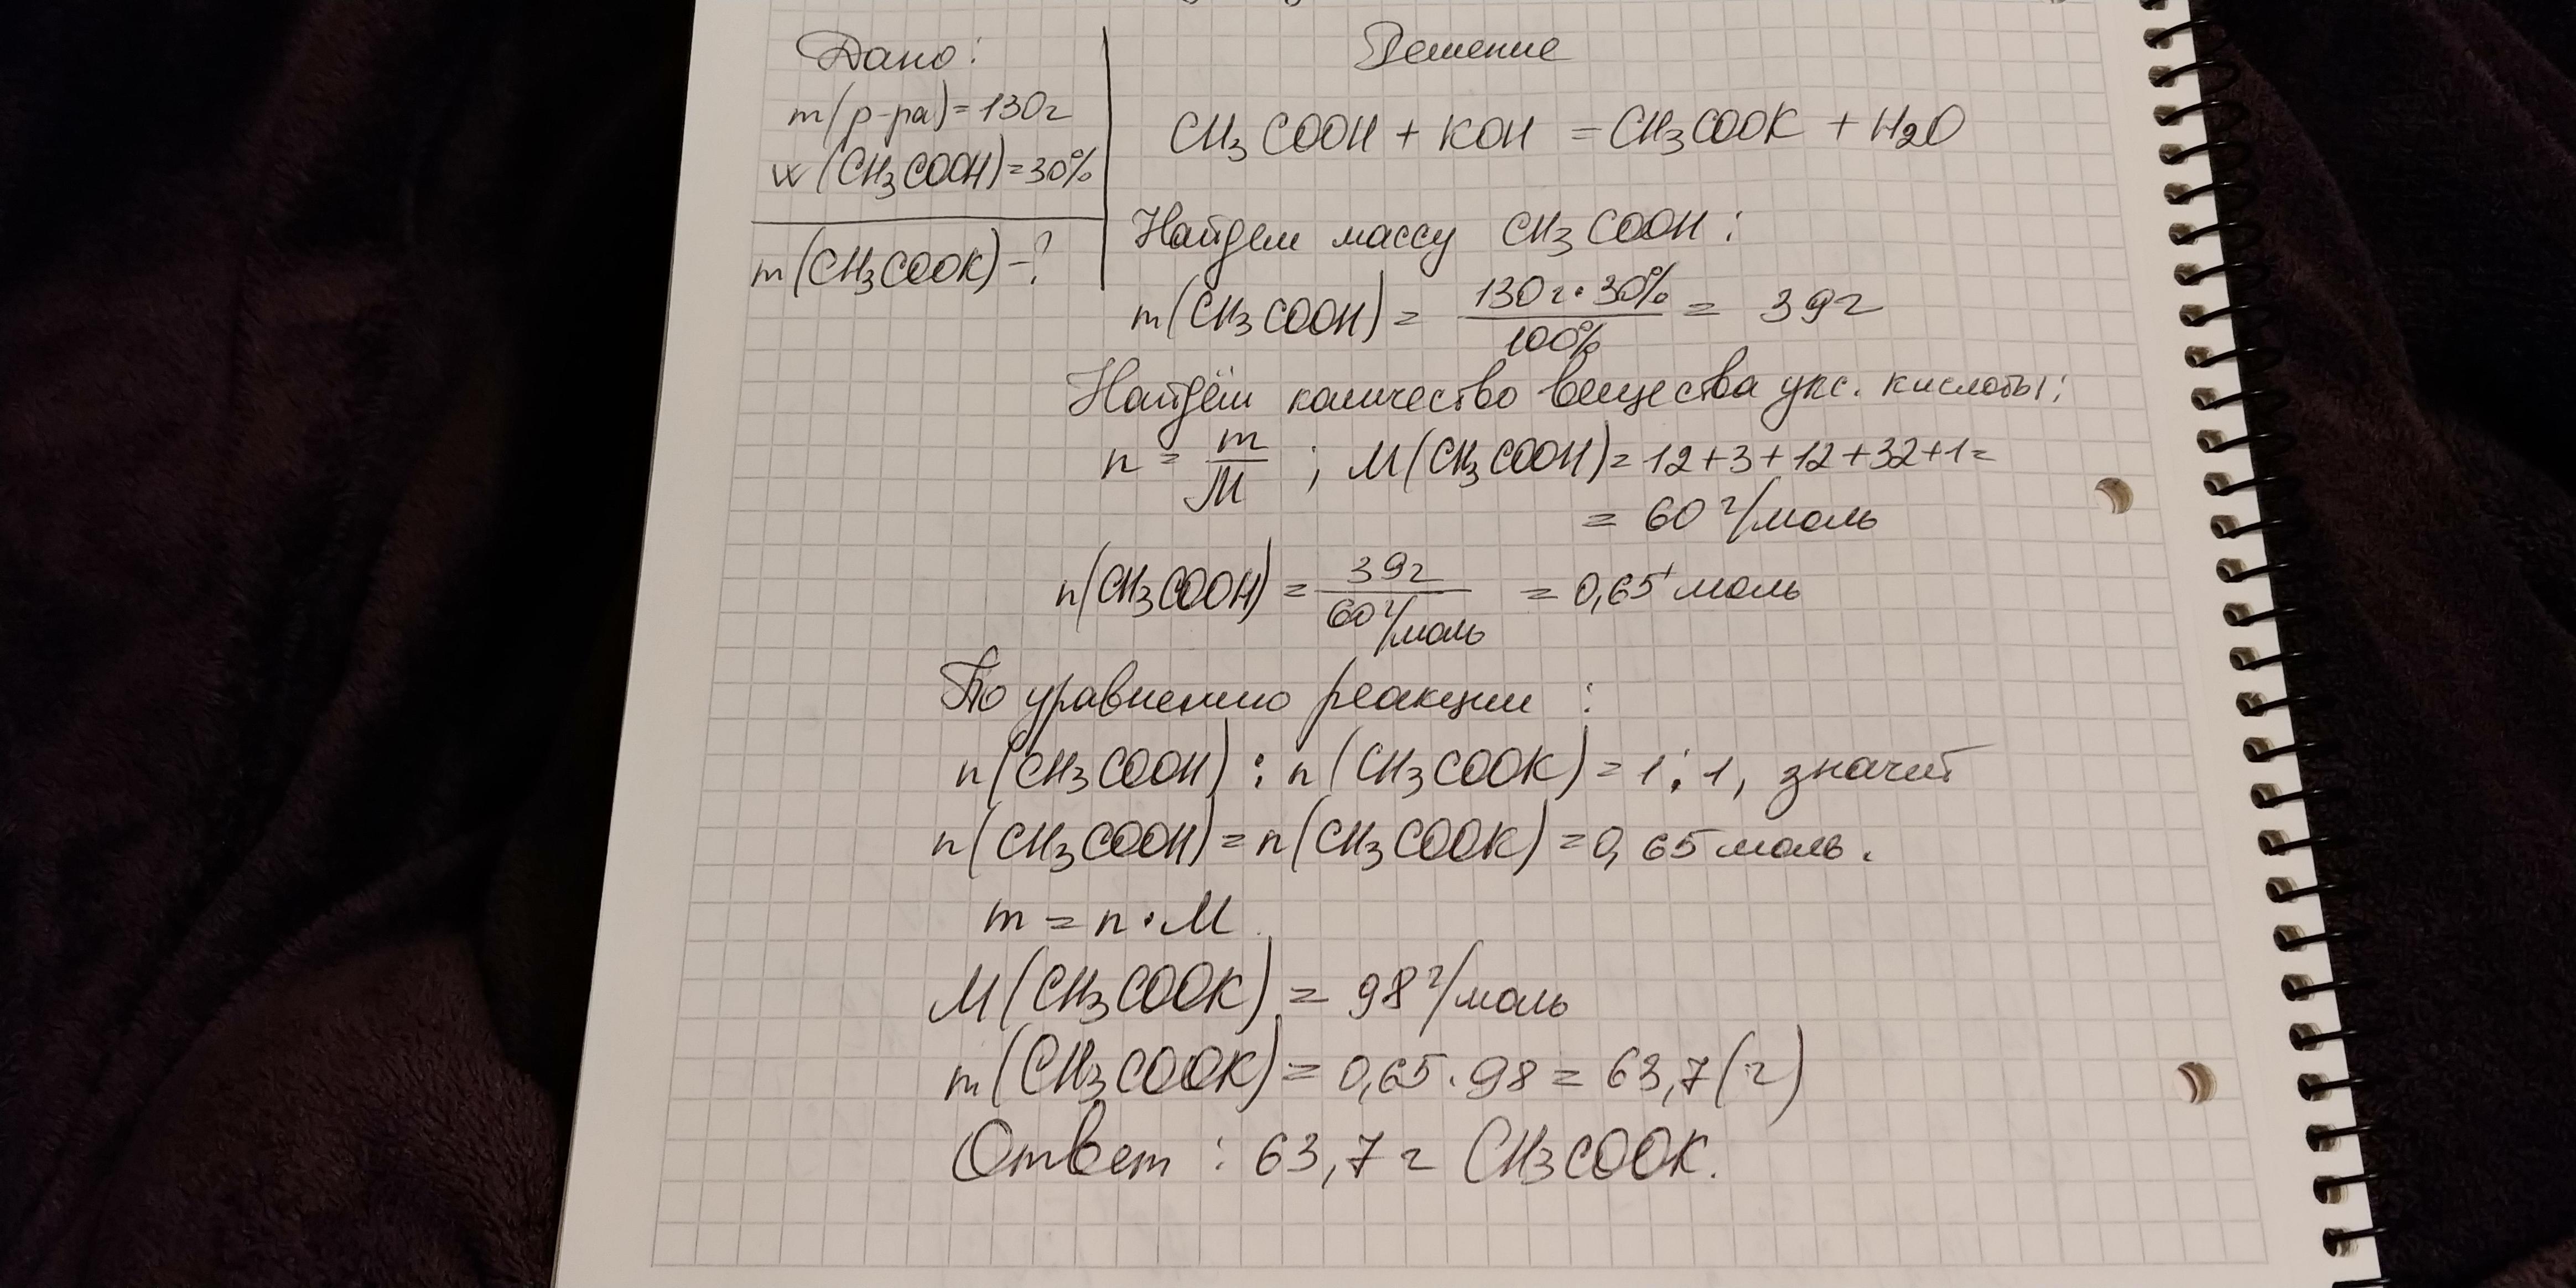 Дано:
m(р-ра)=130г
w(CH3COOH)=30%
m(CH3COOK)-?
Решение
CH3COOH + KOH = CH3COOK + H2O
Найдем массу CH3COOH:
m(CH3COOH) = 130г·30% / 100% = 39г
Найдём количество вещества укс. кислоты:
n = m/M ; M(CH3COOH)=12+3+12+32+1=
= 60 г/моль
n(CH3COOH) = 39г / 60 г/моль = 0,65 моль
По уравнению реакции :
n(CH3COOH) : n(CH3COOK)=1:1, значит
n(CH3COOH)=n(CH3COOK)=0,65 моль.
m = n·M
M(CH3COOK) = 98 г/моль
m(CH3COOK)=0,65·98 = 63,7(г)
Ответ : 63,7 г CH3COOK.